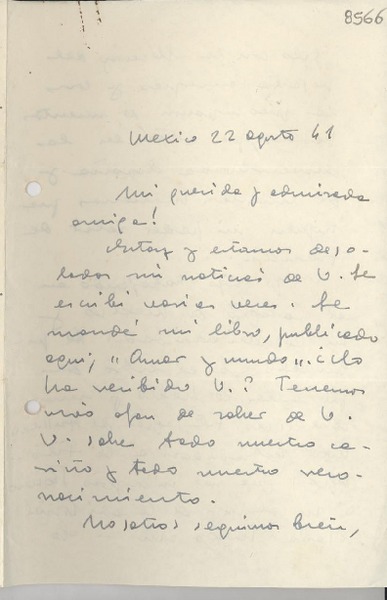 8566
Mexico 22 agosto 41
Mi querida y admirada
amiga!
Estoy y estamos deso-
lados sin noticias de V. Le
escribí varias veces. Le
mandé mi libro, publicado
aquí, "Amar y mundo". ¿Lo
ha recibido V.? Tenemos
más afan de saber de V.
V. sabe todo nuestro ca-
riño y todo nuestro reco-
nocimiento.
Nosotros seguimos bien,